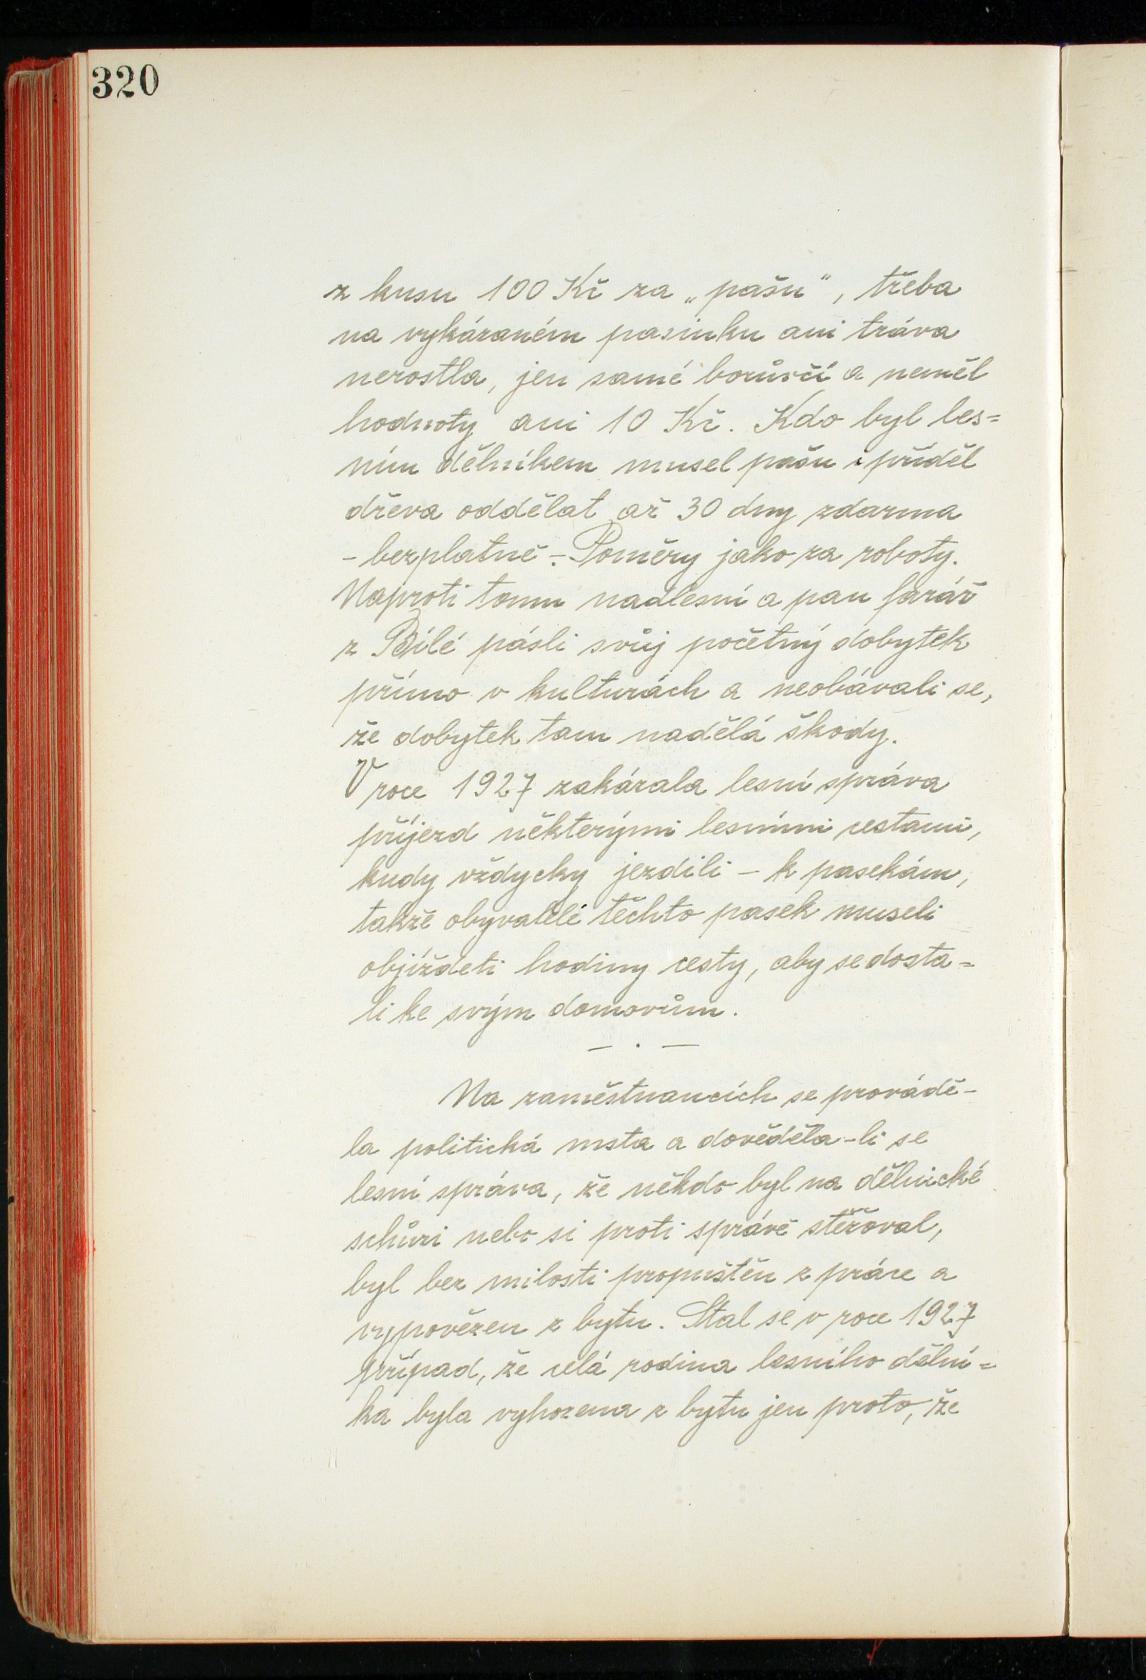 320
z kusu 100 Kč za „pašu", třeba
na vykázaném pasinku ani tráva
nerostla, jen samé borůvčí a neměl
hodnoty ani 10 Kč. Kdo byl les=
ním dělníkem musel pašu i příděl
dřeva oddělat až 30 dny zdarma
- bezplatně -. Poměry jako za roboty.
Naproti tomu nadlesní a pan farář
z Bílé pásli svůj početný dobytek
přímo v kulturách a neobávali se,
že dobytek tam nadělá škody.
V roce 1927 zakázala lesní správa
příjezd některými lesními cestami,
kudy vždycky jezdili - k pasekám,
takže obyvatelé těchto pasek museli
objížděti hodiny cesty, aby se dosta=
li ke svým domovům.
— . —
Na zaměstnancích se provádě-
la politická msta a dověděla-li se
lesní správa, že někdo byl na dělnické
schůzi nebo si proti správě stěžoval,
byl bez milosti propuštěn z práce a
vypovězen z bytu. Stal se v roce 1927
případ, že celá rodina lesního dělní=
ka byla vyhozena z bytu jen proto, že